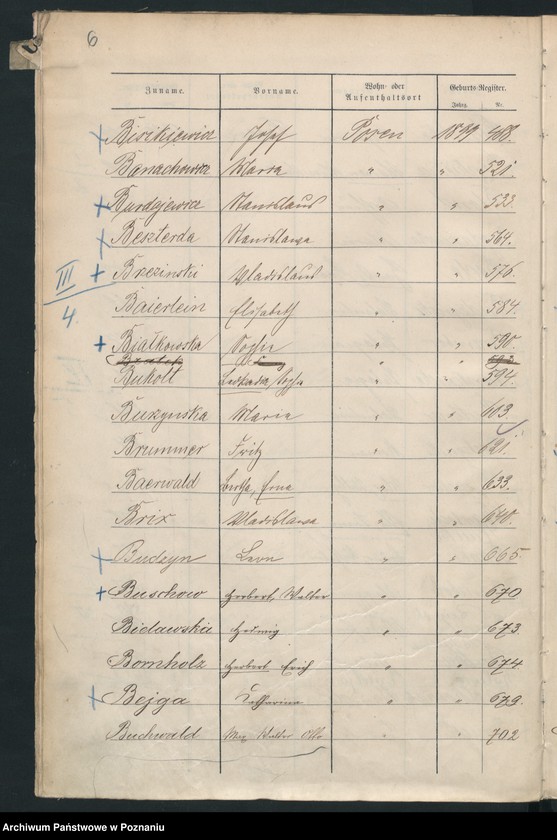 6
Zuname. Vorname. Wohn- oder Aufenthaltsort Geburts-Register. Jahrg. Nr.
Biszkijewicz Josef Posen 1899 488.
Banachowicz Maria " " 521.
Burdajewicz Stanislaus " " 533.
Beszterda Stanislawa " " 564.
Brzezinski Wladislaus " " 576.
III
4.
Baierlein Elisabeth " " 584.
Białkowska Sophie " " 590.
Bukolt Leokadia, Sophie " " 594.
Buzynska Maria " " 603
Brummer Fritz " " 621.
Baerwald Bertha, Erna " " 633.
Brix Wladislawa " " 640.
Budzyn Leon " " 665.
Buschow Herbert, Walter " " 670
Bidawskie Hedwig " " 673.
Bornholz Herbert Erich " " 674
Bejga Catharina " " 679.
Buchwald Max Walter Otto " " 702
Archiwum Państwowe w Poznaniu